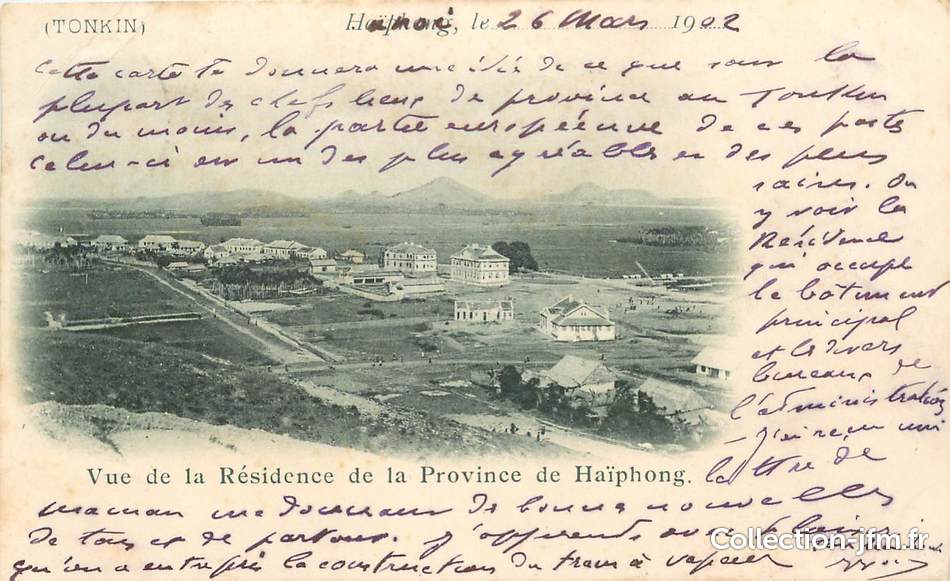 (TONKIN)
Haïphong, le 26 Mars 1902
Hanoï
Cette carte te donnera une idée de ce que sont la
plupart des chefs lieux de province au Tonkin
ou du moins, la partie européenne de ces postes
Celui-ci est un des plus agréables et des plus
saires. On
y voit la
Résidence
qui occupe
le bâtiment
principal
et les divers
bureaux de
l'administration
— J'ai reçu une
lettre de
Vue de la Résidence de la Province de Haïphong.
maman me donnant de bonnes nouvelles
de tous et de partout. J'apprends avec plaisir
qu'on a entrepris la construction du tram à vapeur
Collection-jfm.fr